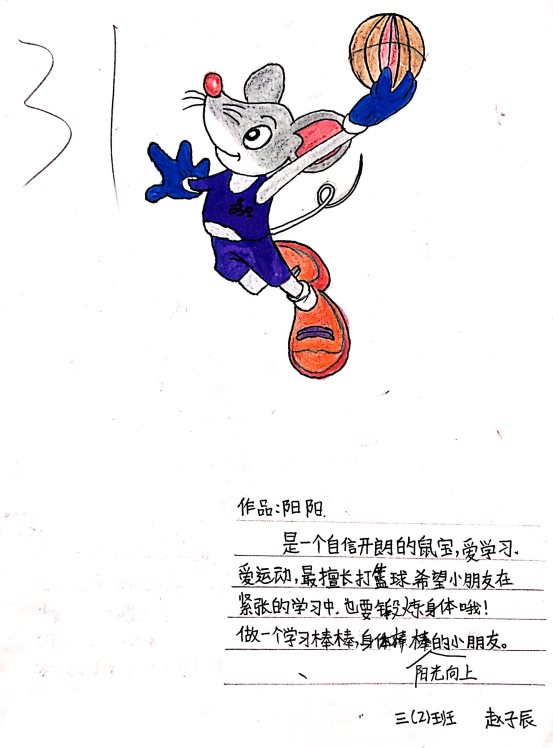 31
作品:阳阳.
是一个自信开朗的鼠宝,爱学习.
爱运动,最擅长打篮球.希望小朋友在
紧张的学习中.也要锻炼身体哦!
做一个学习棒棒,身体棒棒的小朋友。
阳光向上
三(2)班 赵子辰